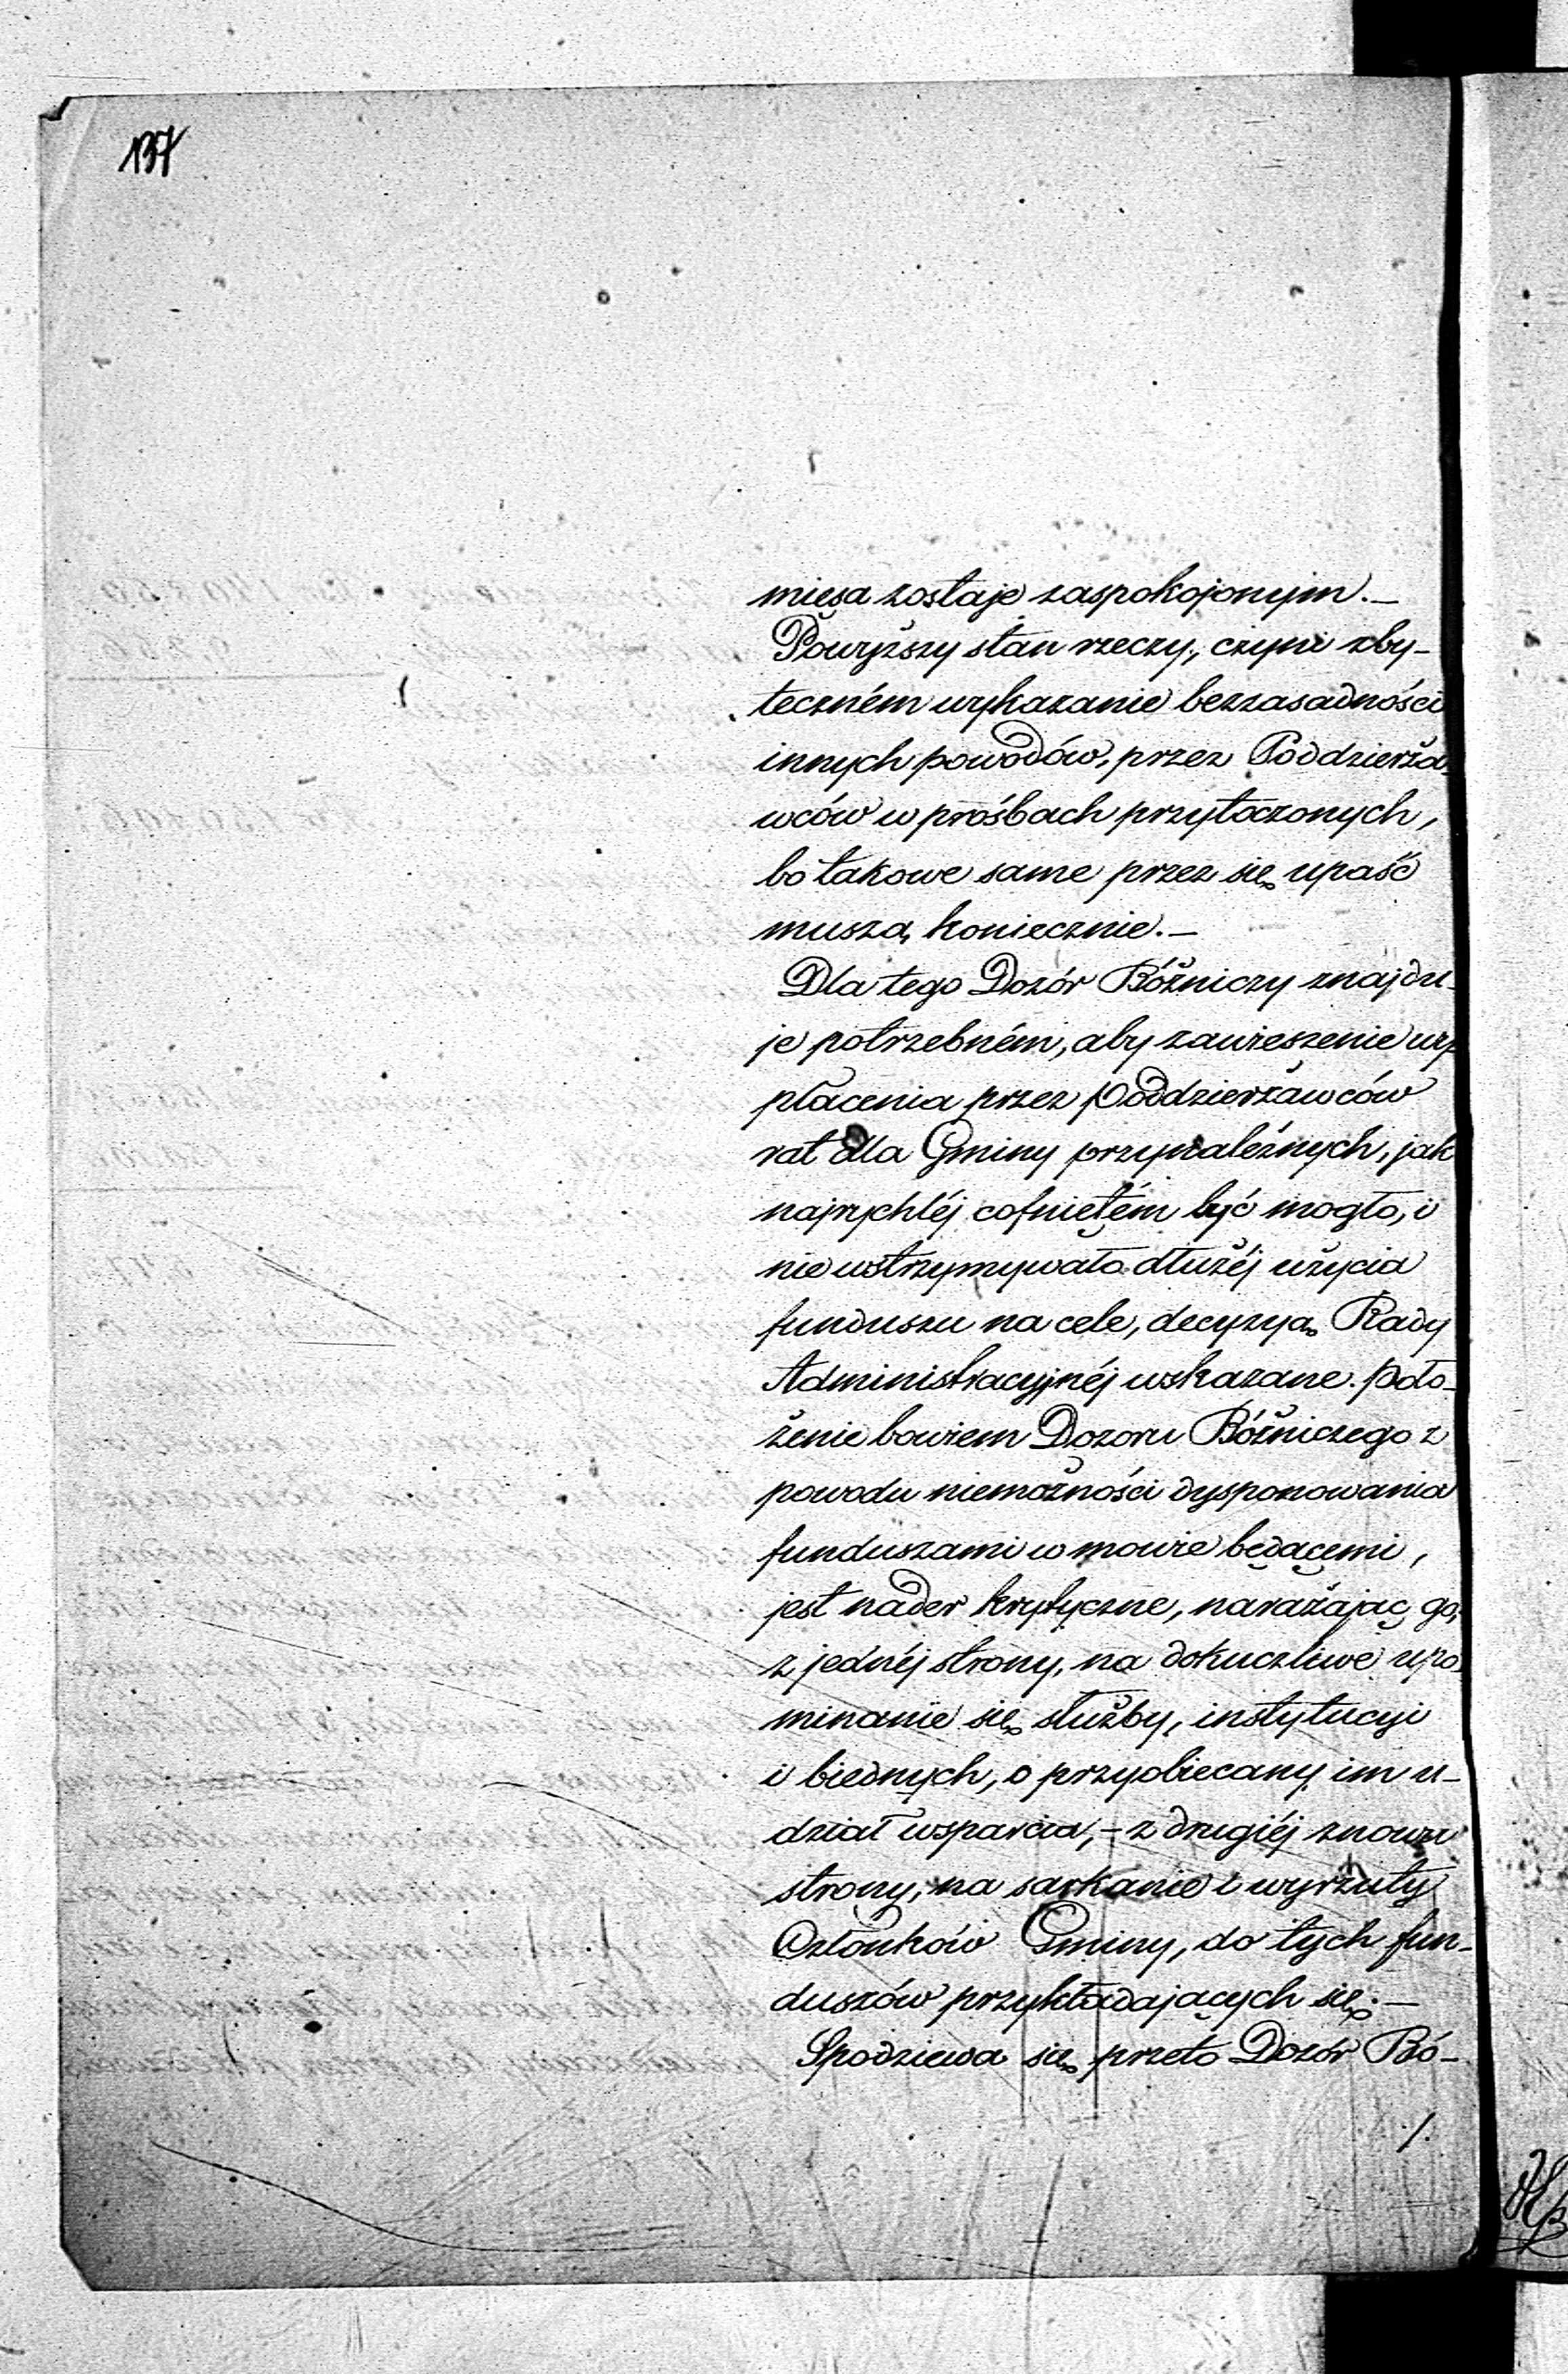 137
mięsa zostaje zaspokojonym.—
Powyższy stan rzeczy, czyni zby-
teczném wykazanie bezzasadności
innych powodów, przez Poddzierża-
wców w prośbach przytoczonych,
bo takowe same przez się upaść
muszą koniecznie.—
Dla tego Dozór Bóżniczy znajdu-
je potrzebném, aby zawieszenie wy-
płacenia przez Poddzierżawców
rat dla Gminy przynależnych, jak
najrychléj cofniętém być mogło, i
nie wstrzymywało dłużéj użycia
funduszu na cele, decyzyą Rady
Administracyjnéj wskazane. Poło-
żenie bowiem Dozoru Bóżniczego z
powodu niemożności dysponowania
funduszami w mowie będącemi,
jest nader krytyczne, narażając go,
z jednéj strony, na dokuczliwe upo-
minanie się służby, instytucyi
i biednych, o przyobiecany im u-
dział wsparcia,— z drugiéj znowu
strony, na sarkanie i wyrzuty
Członków Gminy, do tych fun-
duszów przykładających się.—
Spodziewa się przeto Dozór Bó-
/.